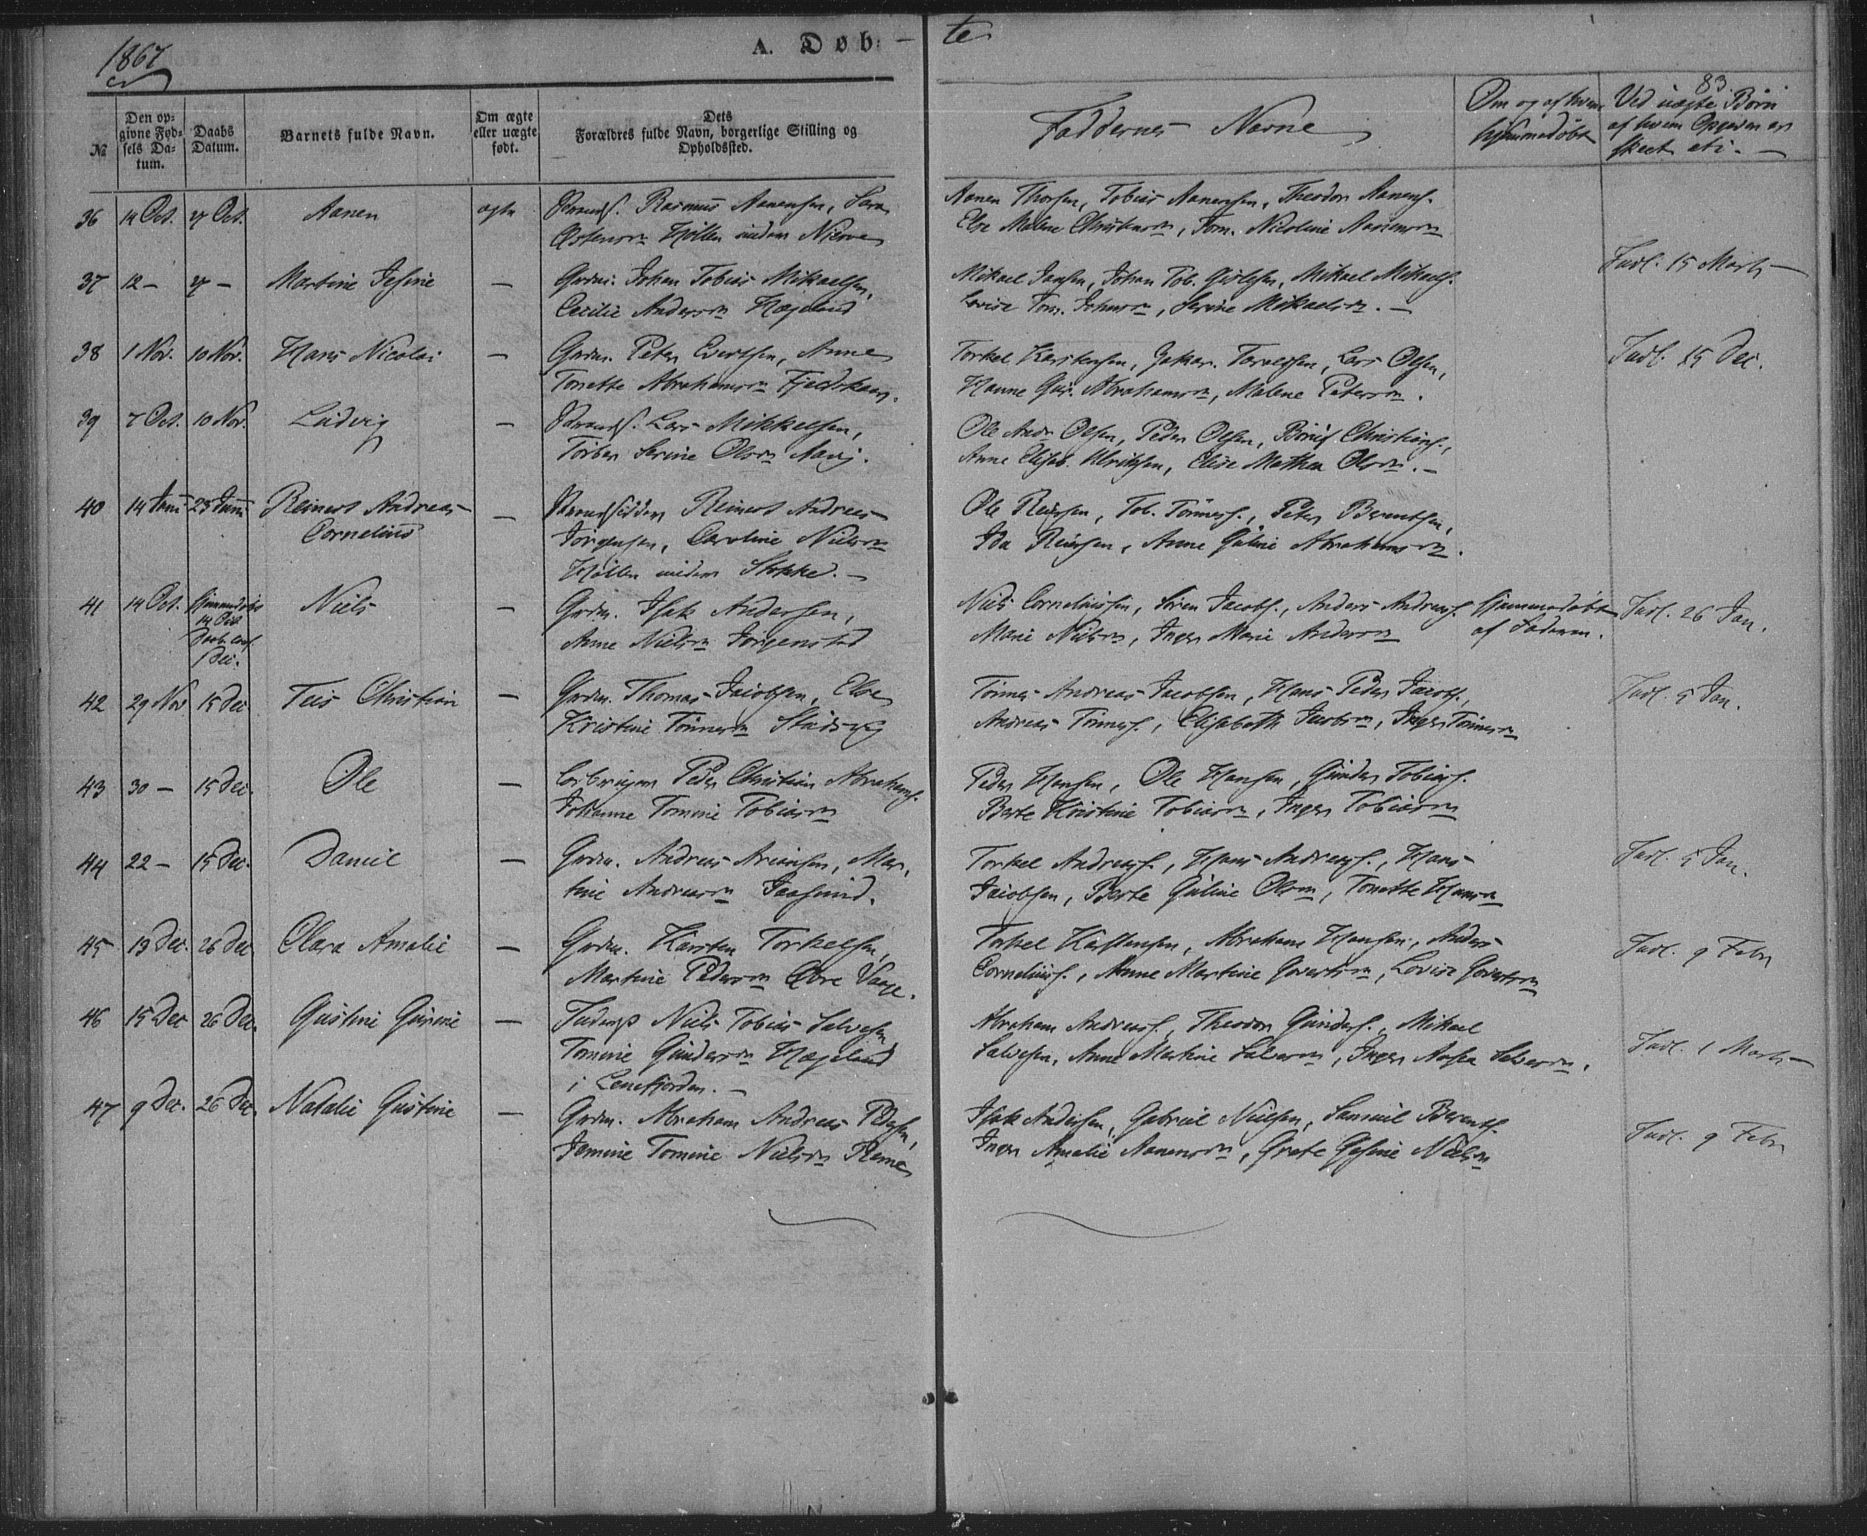 1867
A. Døb-te
83
№ | Den opgivne Fødsels Datum. | Daabs Datum. | Barnets fulde Navn. | Om ægte eller uægte født. | Dets Forældres fulde Navn, borgerlige Stilling og Opholdssted. | Faddernes Navne | Om og af hvem hjemmedøbt | Ved uægte Børn af hvem Opgaven er skeet etc.
36 | 14 Oct. | 27 Oct. | Aanen | ægte | Rasmus Aanensen, Sara
Møllen
Aanen Thorsen, Tobias Aanensen, Theodor Aanens.
Else Malene Christensdn, Tom. Nicoline Aanensdn
37 | 12 – | 27 – | Martine Jesine | – | Grdm. Johan Tobias Mikaelsen,
Cecilie Andersdn Hægeland
Mikael Jansen, Johan Tob. Mikael Mikaels.
Lovise Tom. Johnsdn, Serine Mikaelsdn. –
Indl. 15 Marts –
38 | 1 Nov. | 10 Nov. | Hans Nicolai | – | Grdm. Peter Evertsen, Anne
Tonette Abrahamsdn
Torkel Karstensen, Lars Olsen,
Hanne Abrahamsdn, Malene Petersdn.
Indl. 15 Dec.
39 | 7 Oct. | 10 Nov. | Ludvig | – | Lars Mikkelsen,
Torber Serine Olsdn
Ole Andr. Olsen, Peder Olsen, Christians.,
Anne Elisab. Ulriksen, Elise Mathea Olsdn. –
40 | 14 Juni | 23 Juni | Reinert Andreas | – | Reinert Andreas
Cornelius
Jørgensen, Caroline Nielsdn
Møllen
Ole Tob. Tønnes., Peter Berentsen,
Ida Anne Guline Abrahamsdn.
41 | 14 Oct. | Hjemmedøbt
14 Oct
1 Dec. | Niels | – | Grdm. Isak Andersen,
Anne Nielsdn Jørgenstad
Niels Corneliussen, Søren Jacobs., Anders Andreas. | Hjemmedøbt | Indl. 26 Jan.
Marie Nielsdn, Inger Marie Andersdn | af Faderen.
42 | 29 Nov | 15 Dec | Teis Christian | – | Grdm. Thomas Jacobsen, Else
Kristine Tønnesdn
Tønnes Andreas Jacobsen, Hans Peder Jacobs.,
Andreas Tønnes., Elisabeth Jacobsdn, Inger Tønnesdn
Indl. 5 Jan.
43 | 30 – | 15 Dec. | Ole | – | Peder Christian Abrahams.
Johanne Tomine Tobiasdn
Peder Hansen, Ole Hansen, Gunder Tobias.
Berte Kristine Tobiasdn, Inger Tobiasdn
44 | 22 – | 15 Dec. | Daniel | – | Grdm. Andreas Ariansen, Mar-
tine Andreasdn Jaasund.
Torkel Andreas., Hans Andreas., Hans
Jacobsen, Berte Guline Olsdn, Tonette Hansdn
Indl. 5 Jan.
45 | 13 Dec. | 26 Dec | Clara Amalie | – | Grdm. Karsten Torkelsen,
Martine Pedersdn Øvre Vaage.
Torkel Karstensen, Abraham Hansen, Anders
Cornelius., Anne Martine Govertsdn, Lovise Govertsdn
Indl. 9 Febr
46 | 15 Dec | 26 Dec. | Gustine | – | Niels Tobias Salvesen,
Tomine Gundersdn Hægeland
i Lenefjorden. –
Abraham Andreas., Theodor Gunders., Mikael
Salvesen, Anne Martine Salvesdn, Inger Aasea Salvesdn.
Indl. 1 Marts –
47 | 9 Dec. | 26 Dec. | Natalie Gustine | – | Grdm. Abraham Andreas Pedersen,
Jemine Tomine Nielsdn Reme
Isak Andersen, Gabriel Nielsen, Samuel Berents.
Inger Amalie Aanensdn, Grete Gesine Nielsdn
Indl. 9 Febr